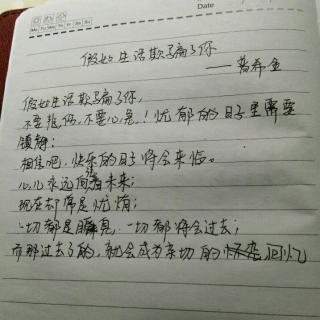 Date
假如生活欺骗了你
——普希金
假如生活欺骗了你,
不要悲伤,不要心急!忧郁的日子里需要
镇静:
相信吧,快乐的日子将会来临。
心儿永远向着未来;
现在却常是忧惰;
一切都是瞬息,一切都将会过去;
而那过去了的,就会成为亲切的怀恋回忆